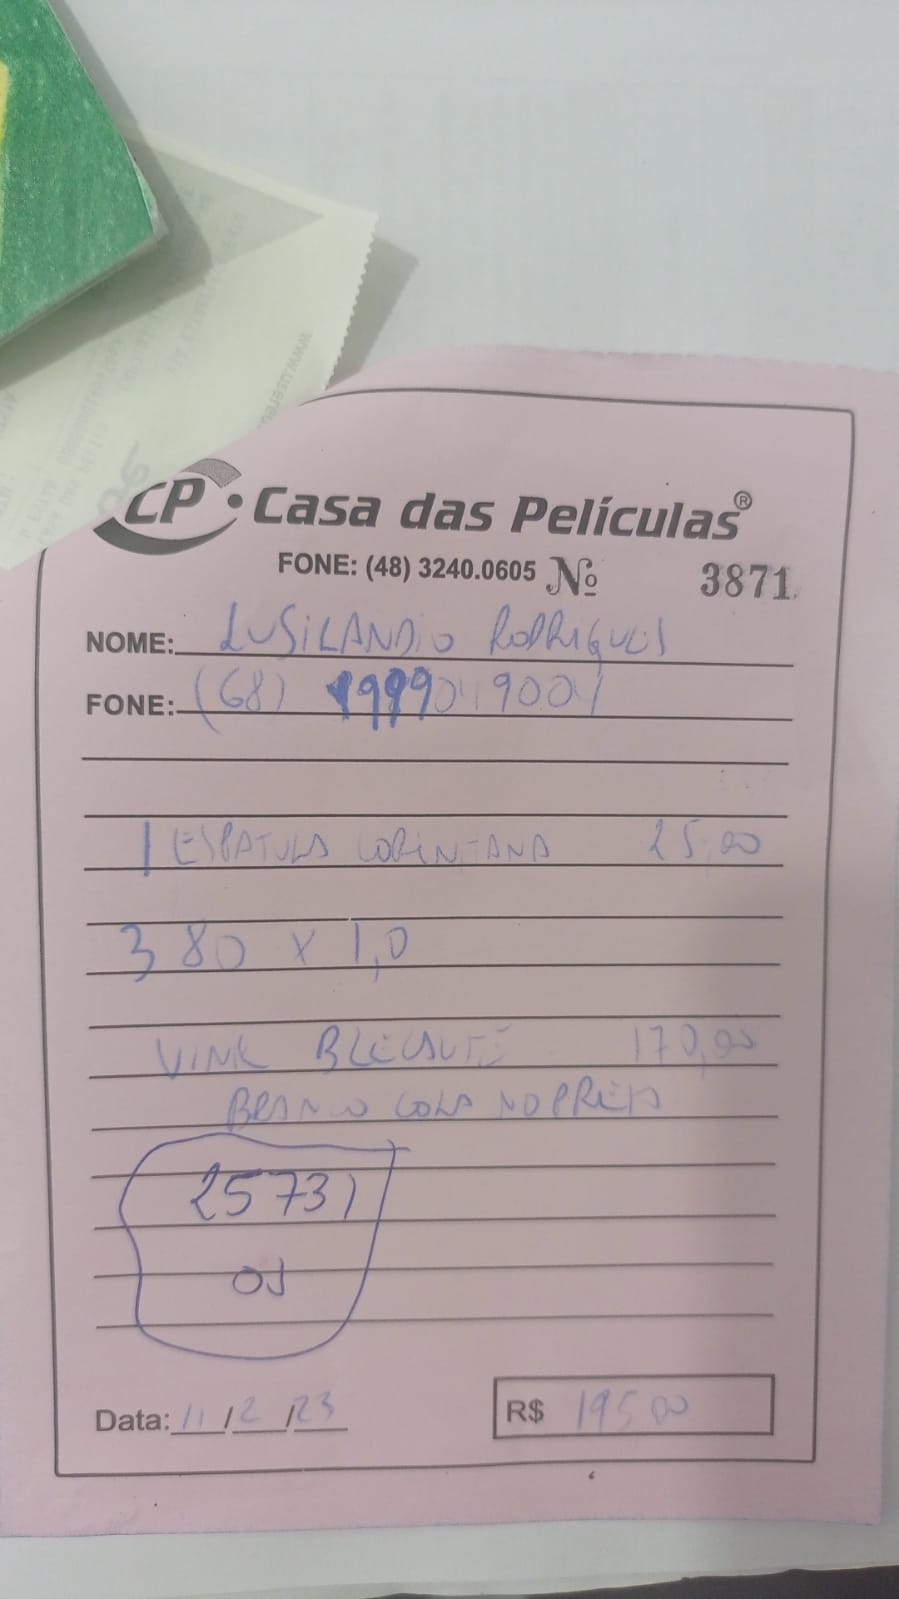 CP • Casa das Películas®
FONE: (48) 3240.0605 Nº 3871
NOME: LUSILANDIO RODRIGUES
FONE: (68)
1 ESPATULA 25,00
380 x 1,0
BLECAUTE 170,00
BRANCO COLA NO PRETA
25731
OS
Data: 11/2/23 R$ 195 00